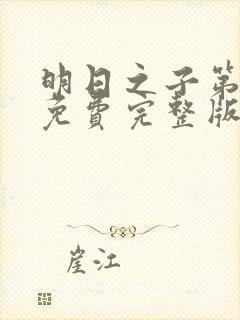 明日之子第
免费完整版
崖江